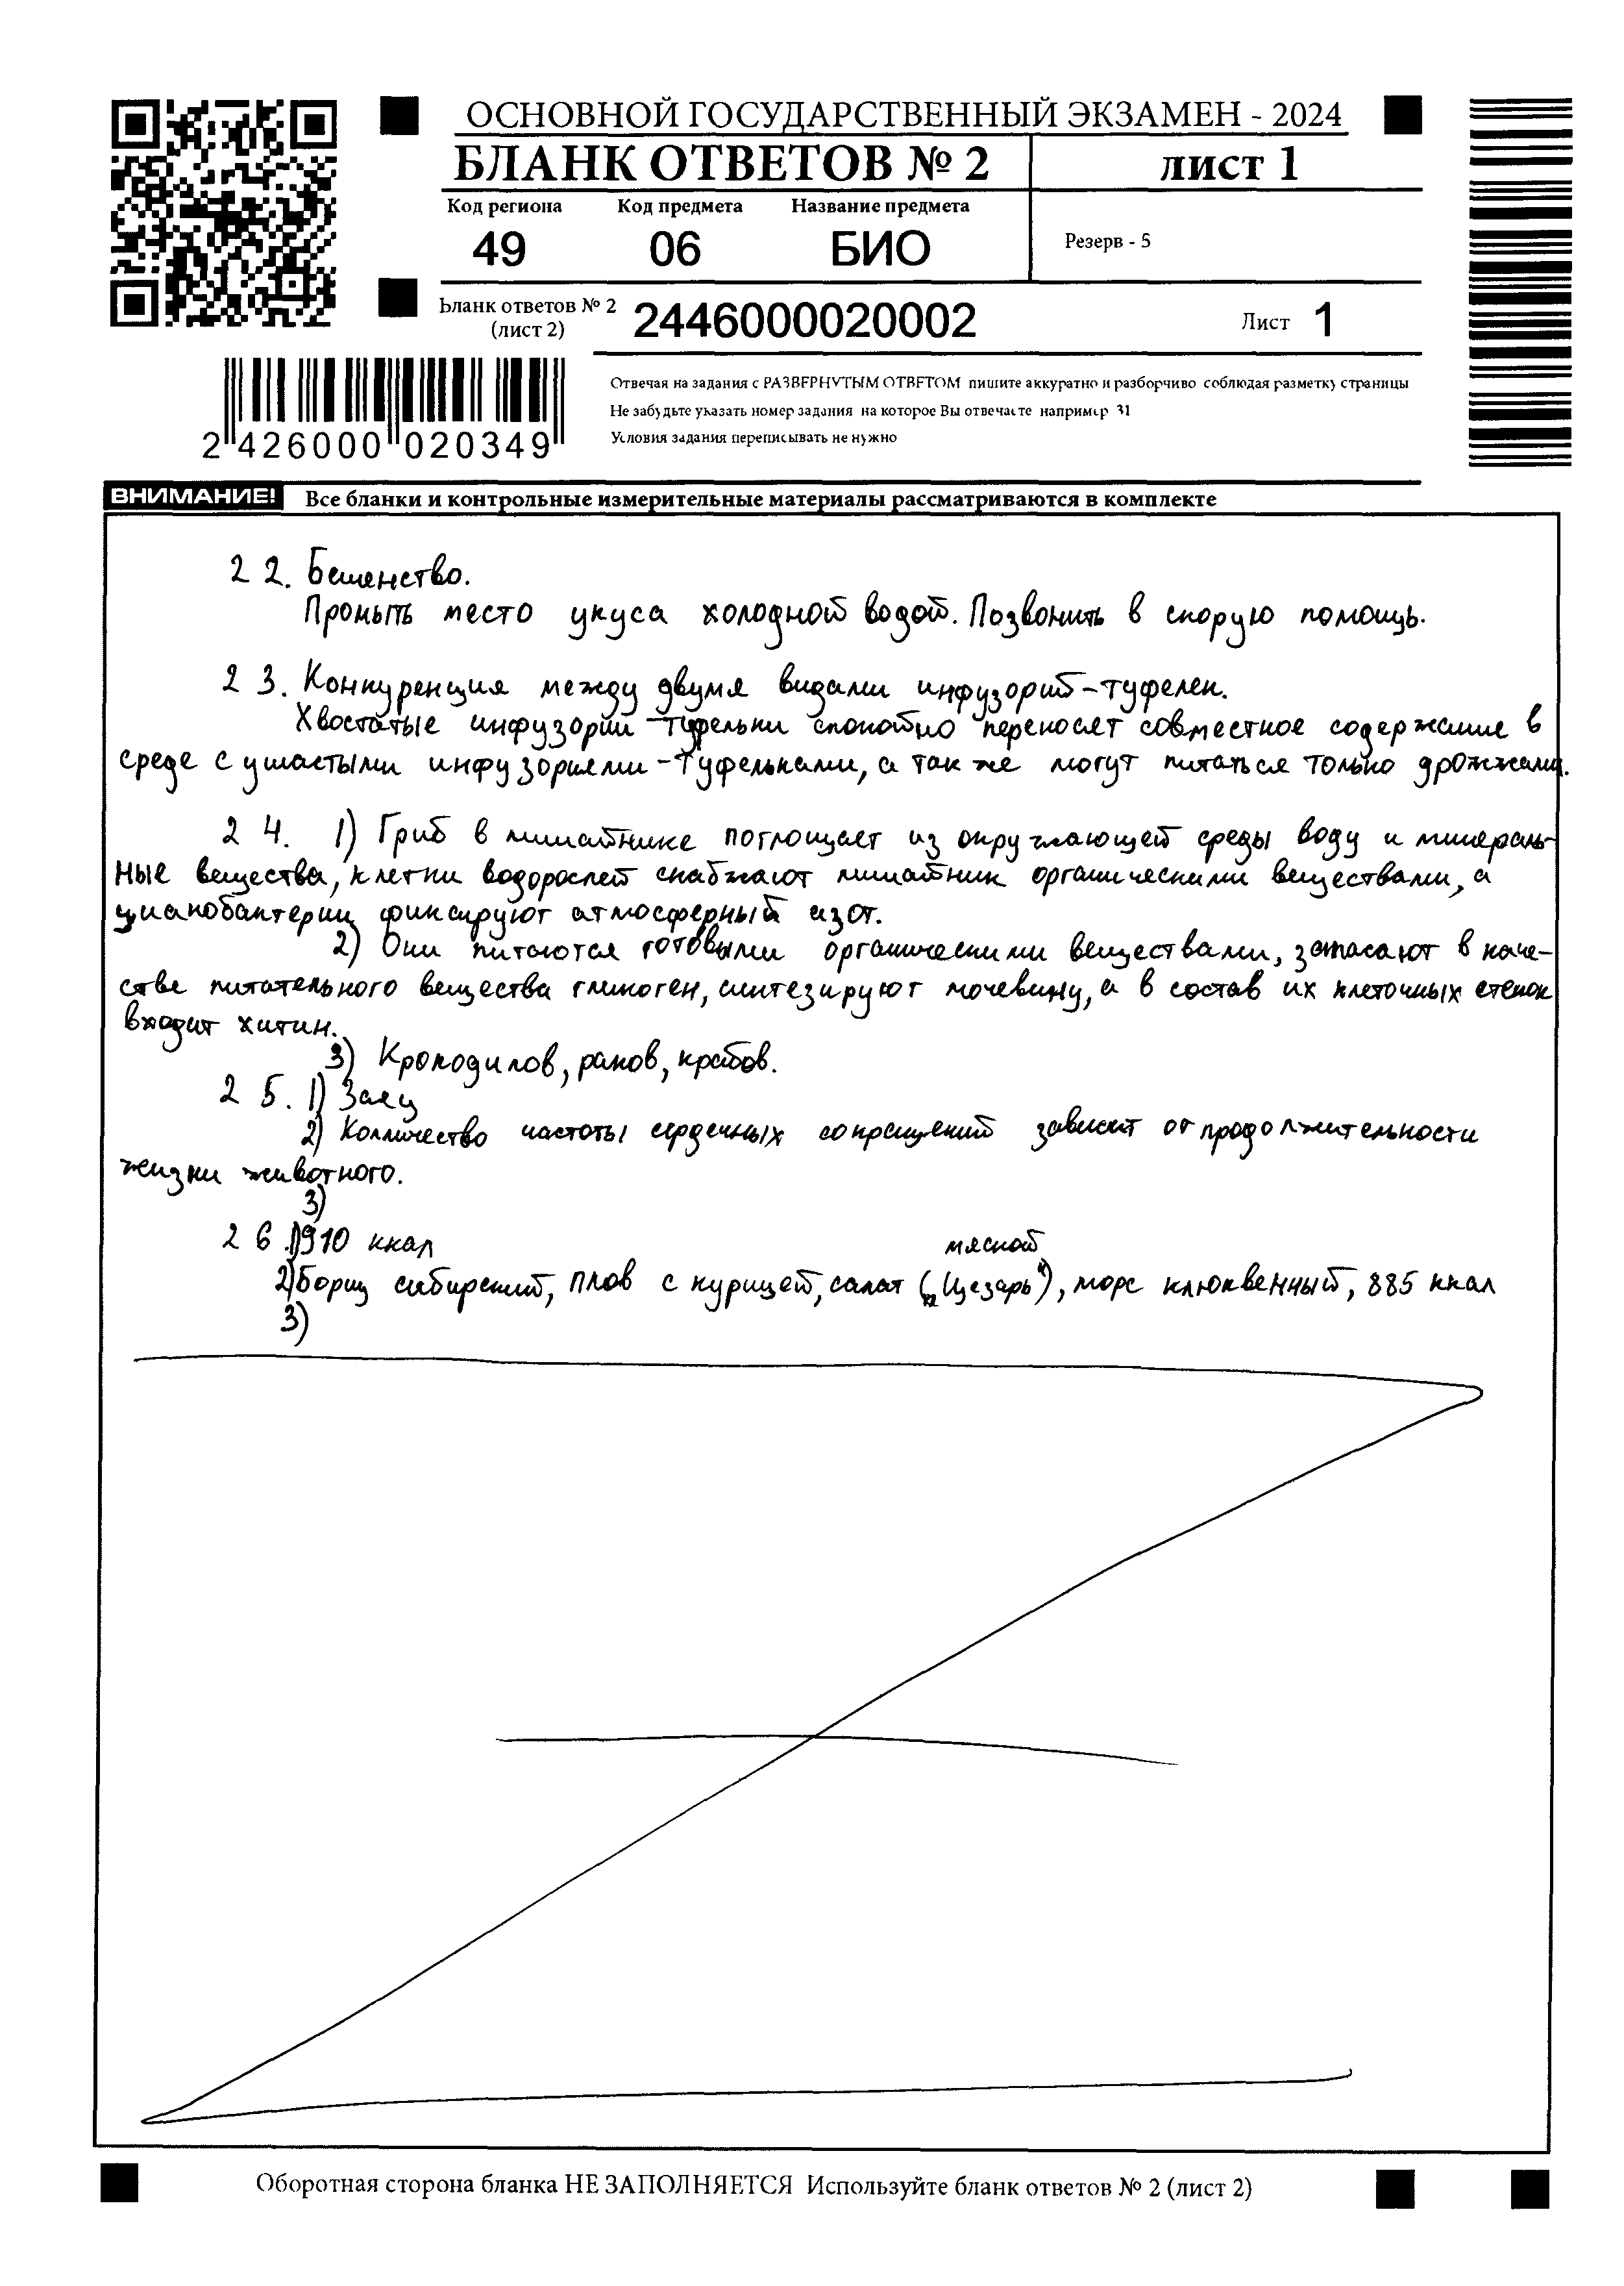 ОСНОВНОЙ ГОСУДАРСТВЕННЫЙ ЭКЗАМЕН - 2024
БЛАНК ОТВЕТОВ № 2
лист 1
Код региона
Код предмета
Название предмета
49
06
БИО
Резерв - 5
Бланк ответов № 2
(лист 2)
2446000020002
Лист 1
2 426000 020349
Отвечая на задания с РАЗВЕРНУТЫМ ОТВЕТОМ пишите аккуратно и разборчиво соблюдая разметку страницы
Не забудьте указать номер задания на которое Вы отвечаете например 31
Условия задания переписывать не нужно
ВНИМАНИЕ! Все бланки и контрольные измерительные материалы рассматриваются в комплекте
22. Бешенство.
Промыть место укуса холодной водой. Позвонить в скорую помощь.
23. Конкуренция между двумя видами инфузорий-туфелек.
Хвостатые инфузории-туфельки спокойно переносят совместное содержание в
среде с ушастыми инфузориями-туфельками, а так же могут питаться только дрожжами.
24. 1) Гриб в лишайнике поглощает из окружающей среды воду и минераль-
ные вещества, клетки водорослей снабжают лишайник органическими веществами, а
цианобактерии фиксируют атмосферный азот.
2) Они питаются готовыми органическими веществами, запасают в каче-
стве питательного вещества гликоген, синтезируют мочевину, а в состав их клеточных стенок
входит хитин.
3) Крокодилов, раков, крабов.
25. 1) Заяц
2) Колличество частоты сердечных сокращений зависит от продолжительности
жизни животного.
3)
26. 1) 910 ккал
мясной
2) Борщ сибирский, плов с курицей, салат („Цезарь"), морс клюквенный, 885 ккал
3)
Оборотная сторона бланка НЕ ЗАПОЛНЯЕТСЯ Используйте бланк ответов № 2 (лист 2)